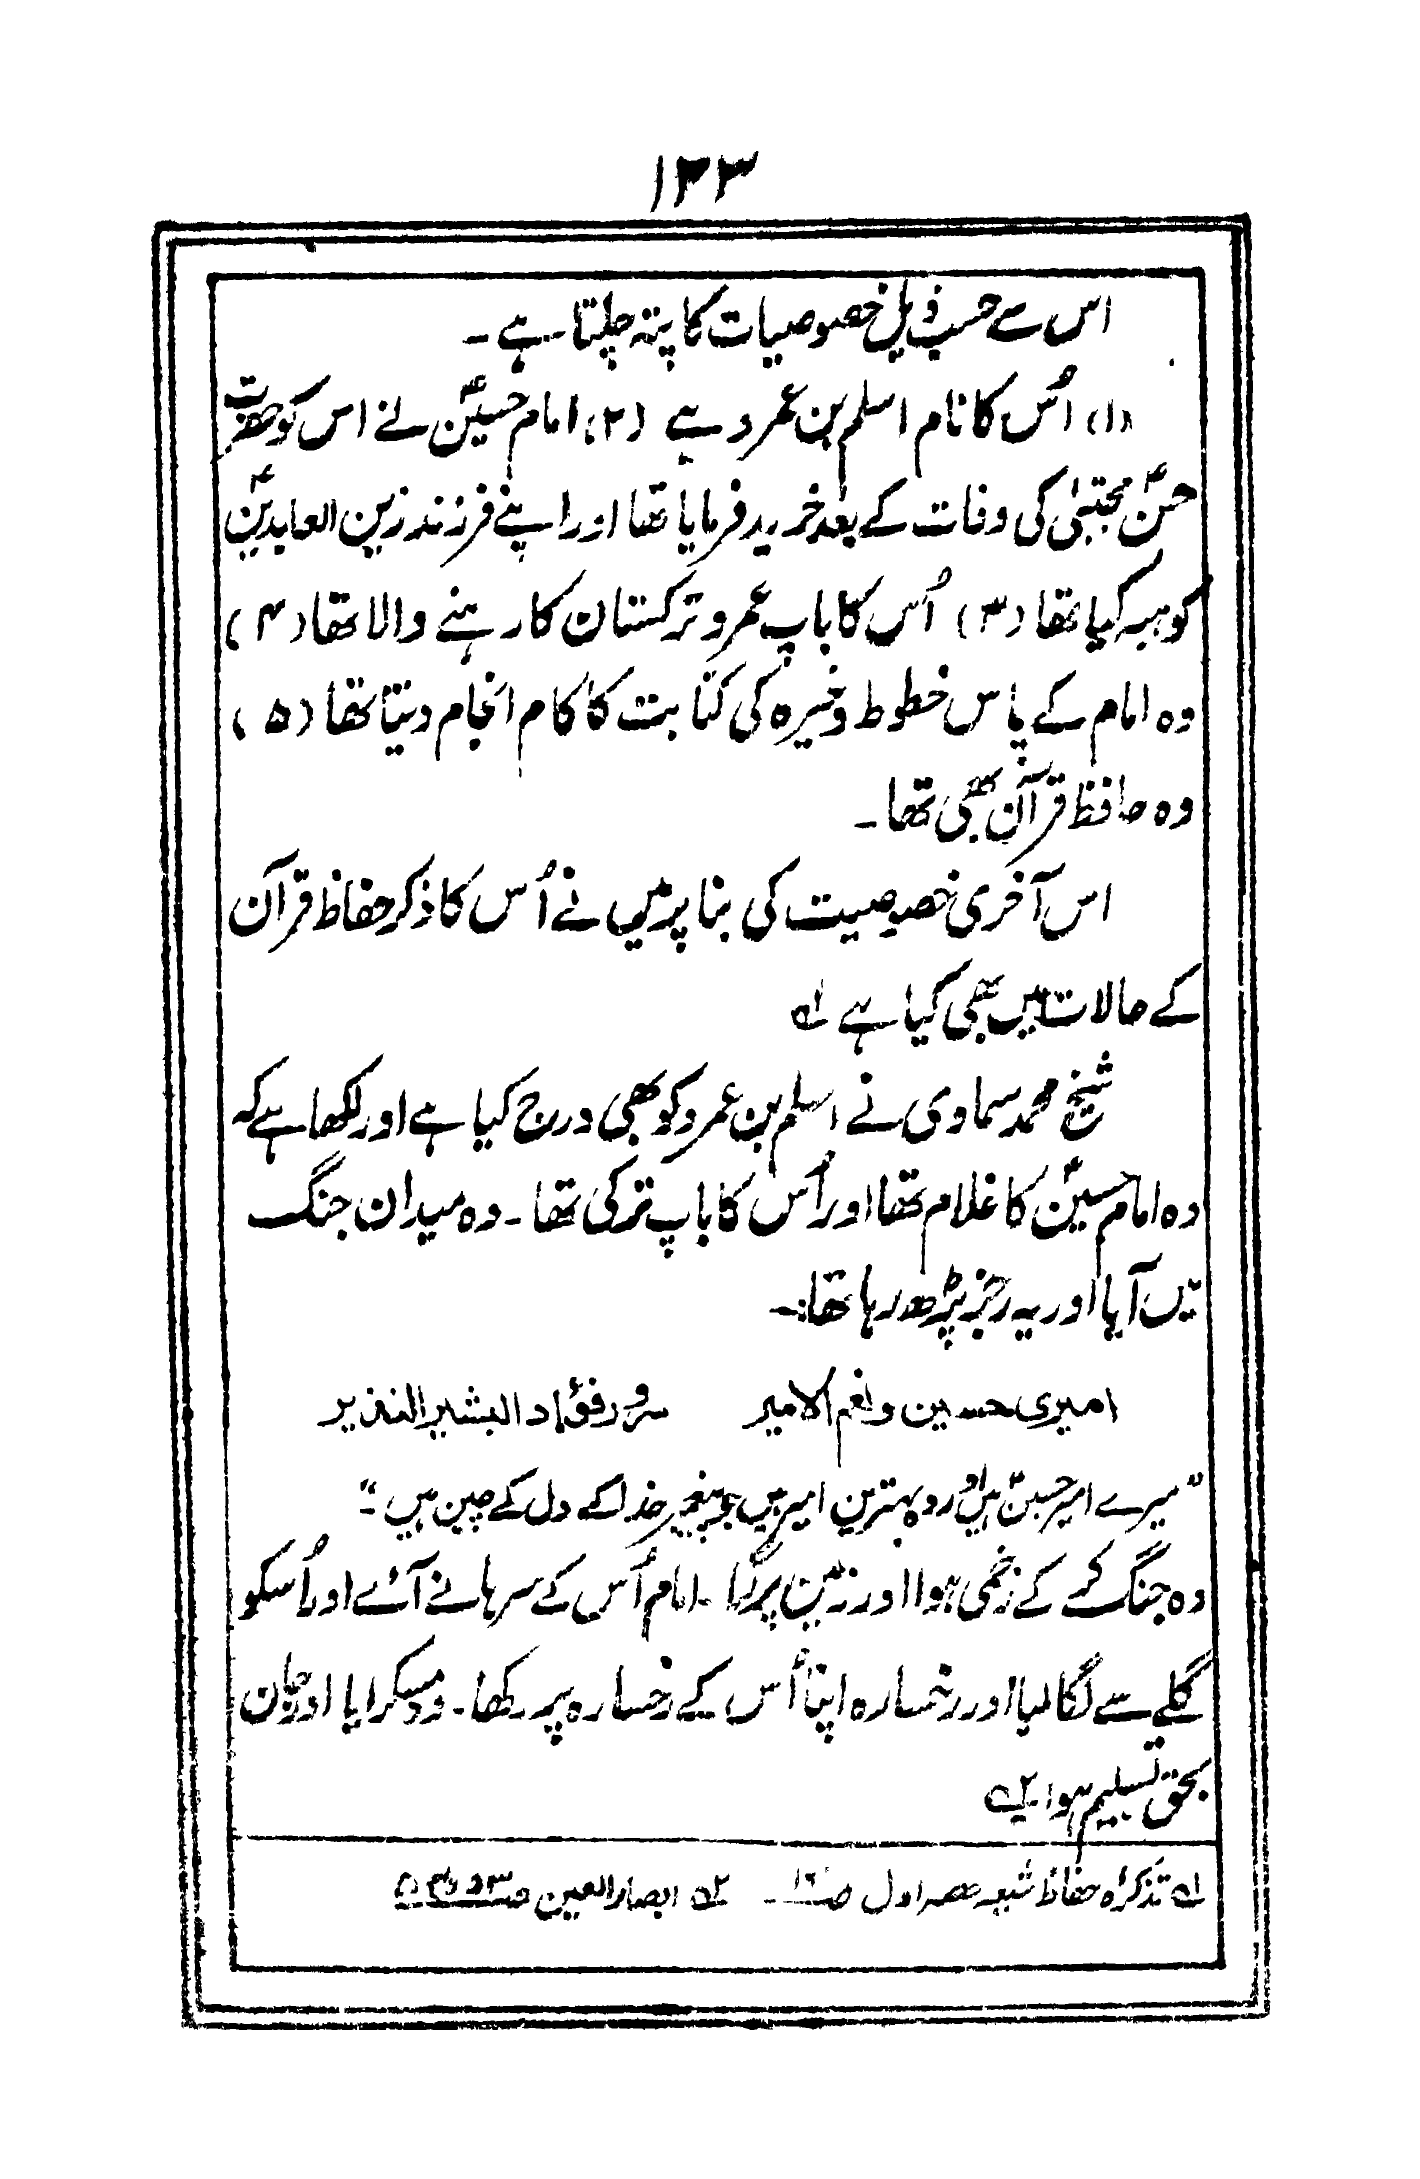 ۱۳۳
اس سے حسب ذیل خصوصیات کا پتہ چلتا ہے۔
(۱) اُس کا نام اسلم بن عمرو ہے (۲) امام حسینؑ نے اس کو حضرت
حسنؑ مجتبیٰ کی وفات کے بعد خرید فرمایا تھا اور اپنے فرزند زین العابدینؑ
کو ہبہ کیا تھا (۳) اُس کا باپ عمرو ترکستان کا رہنے والا تھا (۴)
وہ امام کے پاس خطوط وغیرہ کی کتابت کا کام انجام دیتا تھا (۵)
وہ حافظ قرآن بھی تھا۔
اس آخری خصوصیت کی بنا پر میں نے اُس کا ذکر حفاظ قرآن
کے حالات میں بھی کیا ہے لہ
شیخ محمد سماوی نے اسلم بن عمرو کو بھی درج کیا ہے اور لکھا ہے کہ
وہ امام حسینؑ کا غلام تھا اور اُس کا باپ ترکی تھا۔ وہ میدان جنگ
میں آیا اور یہ رجز پڑھ رہا تھا:۔
امیری حسین ونعم الامیر سرور فؤاد البشیر النذیر
"میرے امیر حسینؑ ہیں اور وہ بہترین امیر ہیں جو پیغمبر خدا کے دل کے چین ہیں۔"
وہ جنگ کر کے زخمی ہوا اور زمین پر گرا۔ امام اُس کے سرہانے آئے اور اُسکو
گلے سے لگا لیا اور رخسارہ اپنا اُس کے رخسارہ پر رکھا۔ وہ مسکرایا اور جان
بحق تسلیم ہوا ۲ہ
لہ تذکرہ حفاظ شیعہ حصہ اول ص ۲ہ ابصار العین ص۵۳